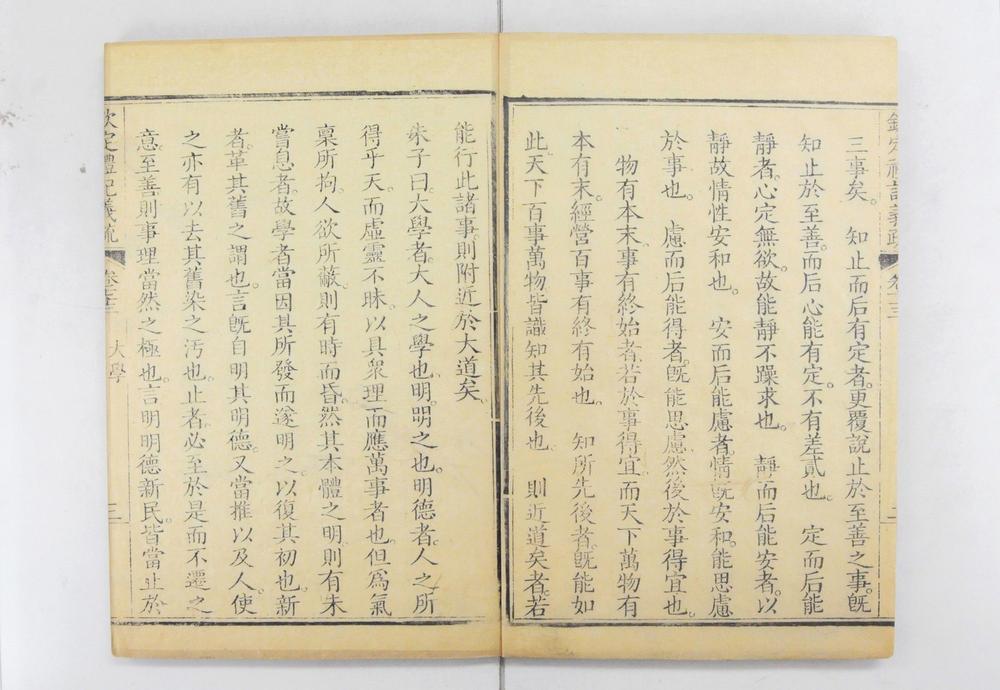 欽定禮記義疏 卷
二
三事矣。 知止而后有定者。更覆說止於至善之事。旣
知止於至善。而后心能有定。不有差貳也。 定而后能
靜者。心定無欲。故能靜不躁求也。 靜而后能安者。以
靜故情性安和也。 安而后能慮者。情旣安和。能思慮
於事也。 慮而后能得者。旣能思慮。然後於事得宜也。
物有本末。事有終始者。若於事得宜。而天下萬物有
本有末。經營百事有終有始也。 知所先後者。旣能如
此。天下百事萬物。皆識知其先後也。 則近道矣者。若
能行此諸事。則附近於大道矣。
朱子曰。大學者。大人之學也。明。明之也。明德者。人之所
得乎天。而虛靈不昧。以具衆理而應萬事者也。但爲氣
稟所拘。人欲所蔽。則有時而昏。然其本體之明。則有未
嘗息者。故學者當因其所發而遂明之。以復其初也。新
者。革其舊之謂也。言旣自明其明德。又當推以及人。使
之亦有以去其舊染之汚也。止者。必至於是而不遷之
意。至善。則事理當然之極也。言明明德新民。皆當止於
欽定禮記義疏 卷 大學
三